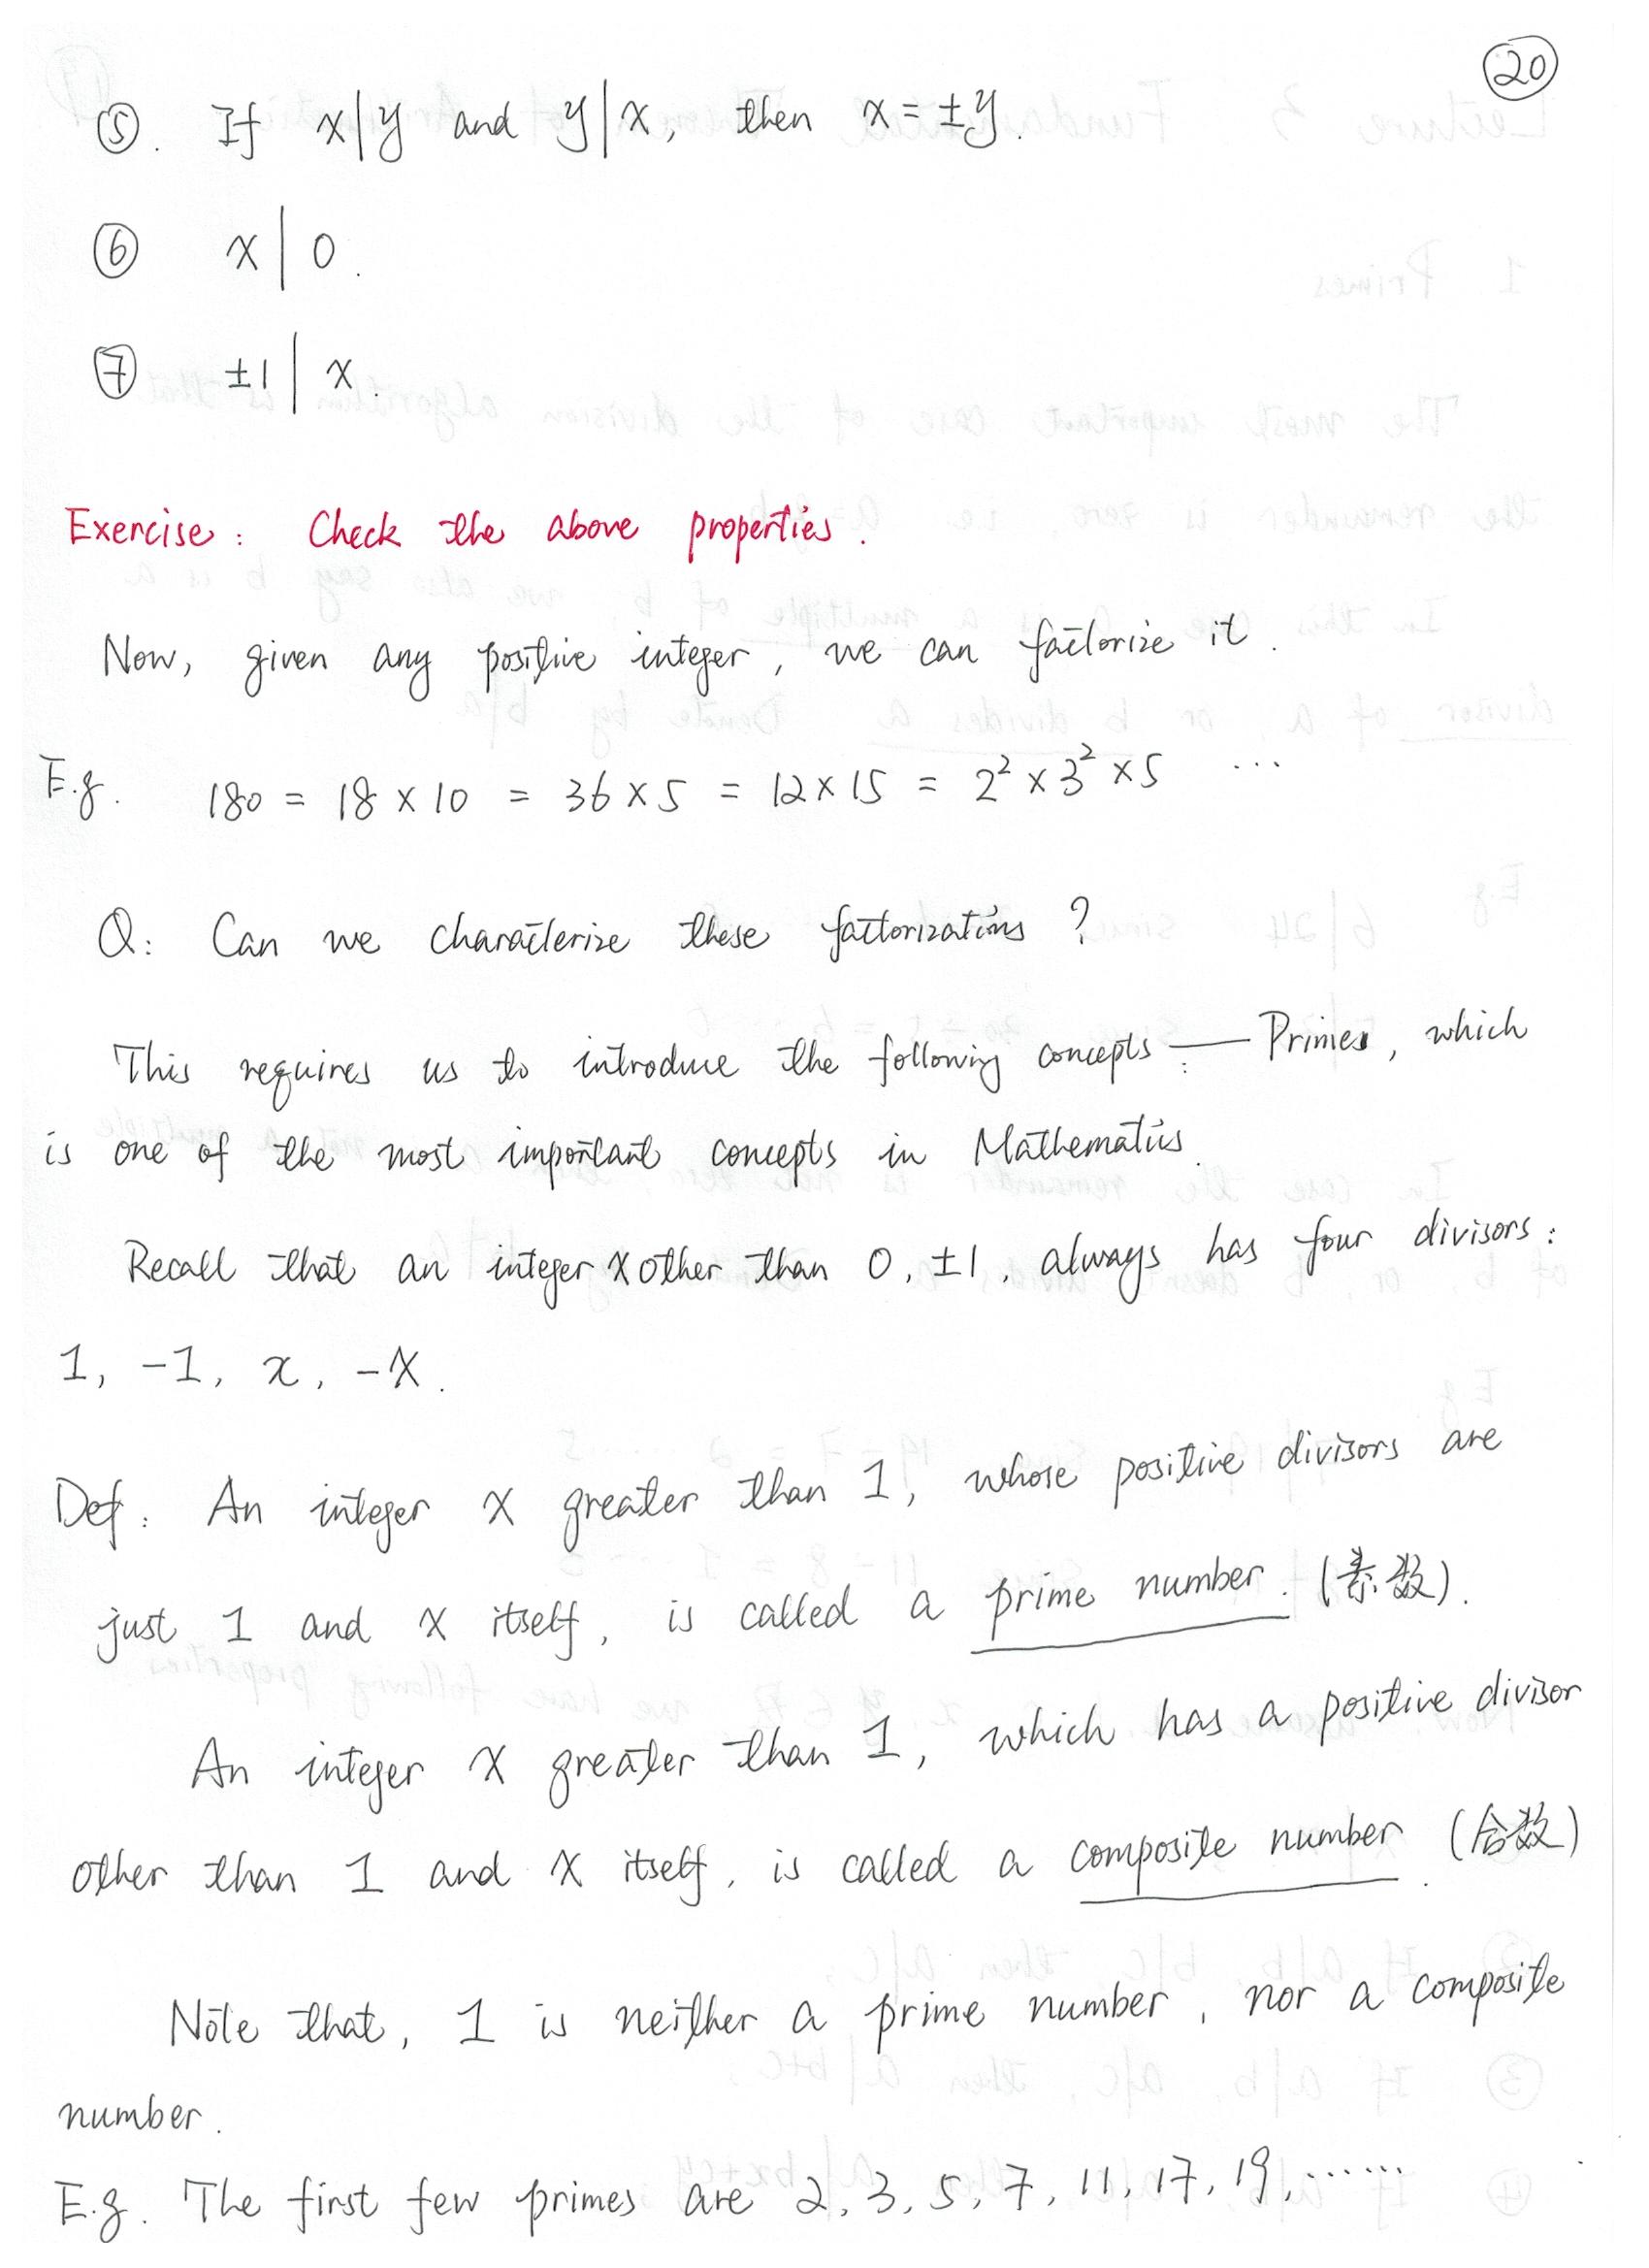 20
⑤. If x|y and y|x, then x = ±y.
⑥ x|0.
⑦ ±1|x.
Exercise: Check the above properties.
Now, given any positive integer, we can factorize it.
E.g. 180 = 18 × 10 = 36 × 5 = 12 × 15 = 2² × 3² × 5 ...
Q: Can we characterize these factorizations ?
This requires us to introduce the following concepts: — Primes, which
is one of the most important concepts in Mathematics.
Recall that an integer x other than 0, ±1, always has four divisors:
1, -1, x, -x.
Def: An integer x greater than 1, whose positive divisors are
just 1 and x itself, is called a prime number. (素数).
An integer x greater than 1, which has a positive divisor
other than 1 and x itself, is called a composite number. (合数)
Note that, 1 is neither a prime number, nor a composite
number.
E.g. The first few primes are 2, 3, 5, 7, 11, 17, 19, ......